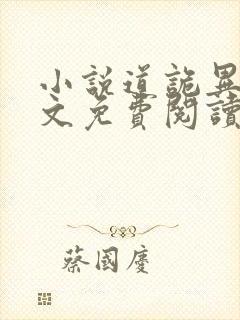 小說道詭異
文免費閱讀
蔡國慶